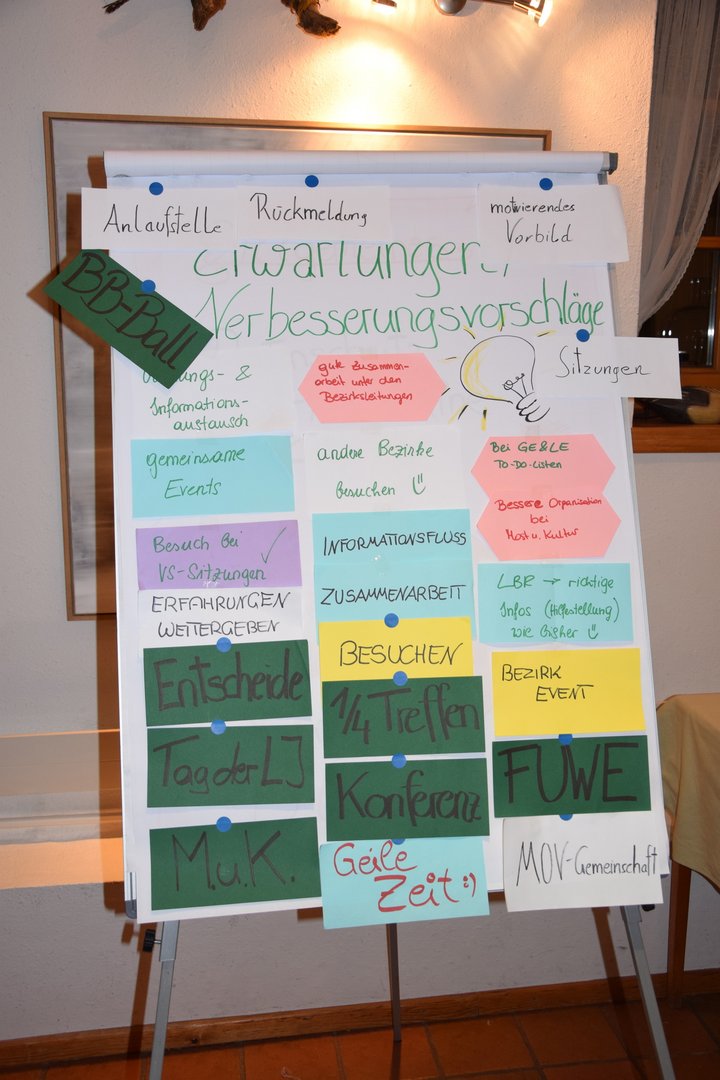 Anlaufstelle
Rückmeldung
motivierendes
Vorbild
Erwartungen
BB-Ball
Verbesserungsvorschläge
Sitzungen
&
Informations-
austausch
gute Zusammen-
arbeit unter den
Bezirksleitungen
gemeinsame
Events
andere Bezirke
besuchen
Bei GE&LE
To-Do-Listen
Bessere Organisation
bei
Most u. Kultur
Besuch bei
VS-Sitzungen
INFORMATIONSFLUSS
ERFAHRUNGEN
WEITERGEBEN
ZUSAMMENARBEIT
LBR → richtige
Infos (Hilfestellung)
wie bisher
BESUCHEN
BEZIRK
EVENT
Entscheide
1/4 Treffen
Tag der LJ
Konferenz
FUWE
M.u.K.
Geile
Zeit :)
MOV-Gemeinschaft